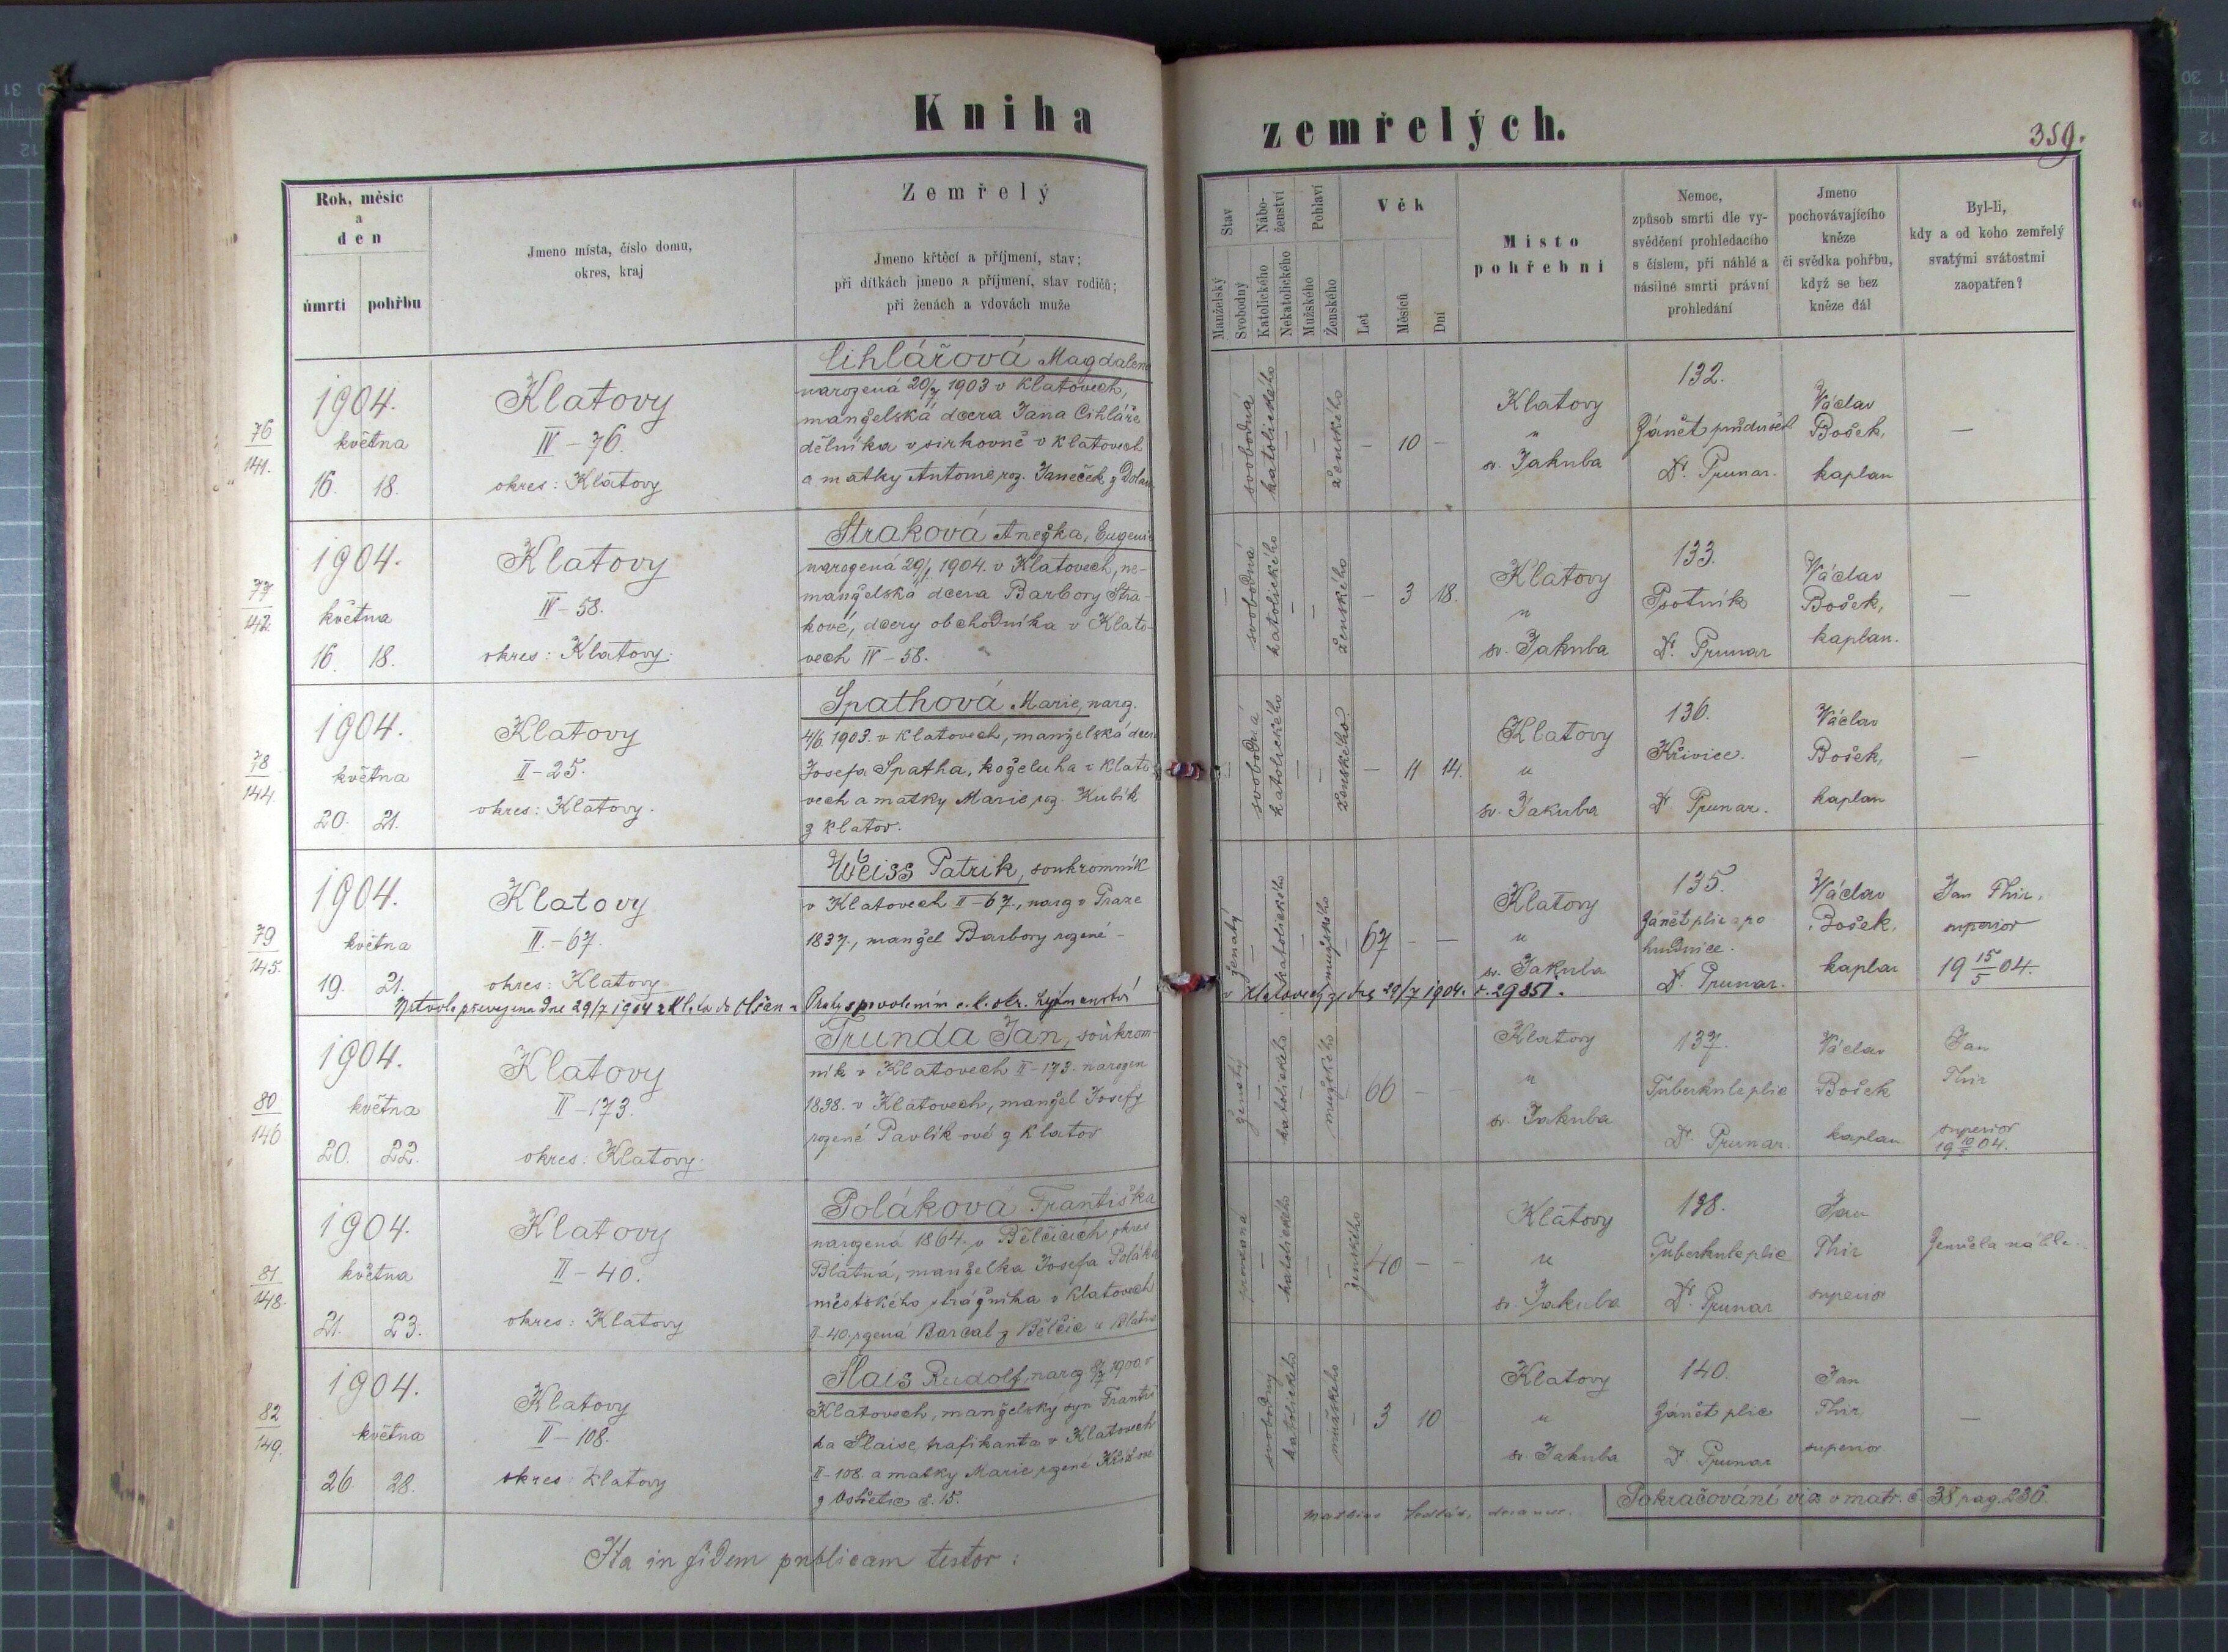 Kniha zemřelých.
359.
Rok, měsíc
a
den
úmrtí pohřbu
Jmeno místa, číslo domu,
okres, kraj
Zemřelý
Jmeno křtěcí a příjmení, stav;
při dítkách jmeno a příjmení, stav rodičů;
při ženách a vdovách muže
Stav
Manželský
Svobodný
Nábo-
ženství
Katolického
Nekatolického
Pohlaví
Mužského
Ženského
Věk
Let
Měsíců
Dní
Místo
pohřební
Nemoc,
způsob smrti dle vy-
svědčení prohledacího
s číslem, při náhlé a
násilné smrti právní
prohledání
Jmeno
pochovávajícího
kněze
či svědka pohřbu,
když se bez
kněze dál
Byl-li,
kdy a od koho zemřelý
svatými svátostmi
zaopatřen?
76
141.
1904.
května
16. 18.
Klatovy
IV-76.
okres: Klatovy
Cihlářová Magdalena
narozená 20/7 1903 v Klatovech,
manželská dcera Jana Cihláře
dělníka v sirkovně v Klatovech
a matky Antonie roz. Janeček z Dolan
— svobodná katolického — — ženského — 10 —
Klatovy
u
sv. Jakuba
132.
Zánět průdušek
Dr. Prunar.
Václav
Bošek,
kaplan
—
77
142.
1904.
května
16. 18.
Klatovy
IV-58.
okres: Klatovy.
Straková Anežka, Eugenie
narozená 29/1 1904. v Klatovech, ne-
manželská dcera Barbory Stra-
kové, dcery obchodníka v Klato-
vech IV-58.
— svobodná katolického — — ženského — 3 18.
Klatovy
u
sv. Jakuba
133.
Psotník
Dr. Prunar
Václav
Bošek,
kaplan.
—
78
144.
1904.
května
20. 21.
Klatovy
II-25.
okres: Klatovy.
Spathová Marie, naroz.
4/6. 1903. v Klatovech, manželská dcera
Josefa Spatha, koželuha v Klato-
vech a matky Marie roz. Kubík
z Klatov.
— svobodná katolického — — ženského — 11 14.
Klatovy
u
sv. Jakuba
136.
Křivice.
Dr. Prunar.
Václav
Bošek,
kaplan
—
79
145.
1904.
května
19. 21.
Klatovy
II.-67.
okres: Klatovy
Weiss Patrik, soukromník
v Klatovech II-67., naroz v Praze
1837., manžel Barbory rozené -
ženatý — katolického — mužského — 67 — —
Klatovy
u
sv. Jakuba
135.
Zánět plic a po
hrudnice.
Dr. Prunar.
Václav
Bošek,
kaplan
Jan Thir,
superior
19 15/5 04.
Mrtvola převezena dne 29/7 1904 z Klatov do Olšan u Prahy s povolením c. k. okr. hejtmanství
v Klatovech ze dne 29/7 1904. č. 29851.
80
146
1904.
května
20. 22.
Klatovy
II-173.
okres: Klatovy.
Trunda Jan, soukrom-
ník v Klatovech II-173. narozen
1838. v Klatovech, manžel Josefy
rozené Pavlíkové z Klatov
ženatý — katolického — mužského — 66 — —
Klatovy
u
sv. Jakuba
137.
Tuberkule plic
Dr. Prunar.
Václav
Bošek
kaplan
Jan
Thir
superior
81
148.
1904.
května
21. 23.
Klatovy
II-40.
okres: Klatovy
Poláková Františka
narozená 1864. v Bělčicích, okres
Blatná, manželka Josefa Poláka
městského strážníka v Klatovech
II-40. rozená Barcal z Bělčic u Blatné
provdaná — katolického — — ženského 40 — —
Klatovy
u
sv. Jakuba
138.
Tuberkule plic
Dr. Prunar
Jan
Thir
superior
Zemřela náhle.
82
149.
1904.
května
26. 28.
Klatovy
II-108.
okres: Klatovy
Šlais Rudolf, naroz 1900. v
Klatovech, manželský syn Františ
ka Šlaise, trafikanta v Klatovech
II-108. a matky Marie rozené
z č. 15.
— svobodný katolického — mužského — 3 10
Klatovy
u
sv. Jakuba
140.
Zánět plic
Dr. Prunar
Jan
Thir
superior
—
Pokračování viz v matr. č. 38 pag. 236.
Ita in fidem publicam testor: